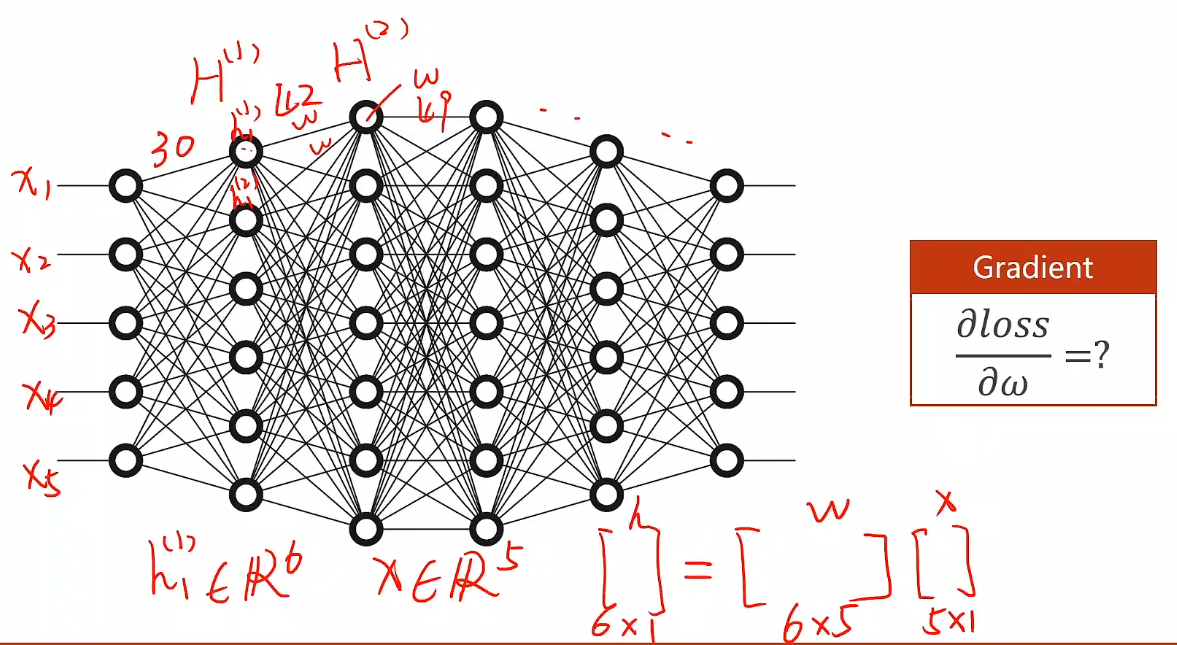 H⁽¹⁾
H⁽²⁾
30
h₁⁽¹⁾
42
w
w
w
49
..
..
h₁⁽²⁾
x₁
x₂
x₃
x₄
x₅
Gradient
∂loss
∂ω
=?
h₁⁽¹⁾ ∈ ℝ⁶
x ∈ ℝ⁵
h w x
[ ] = [ ] [ ]
6×1 6×5 5×1